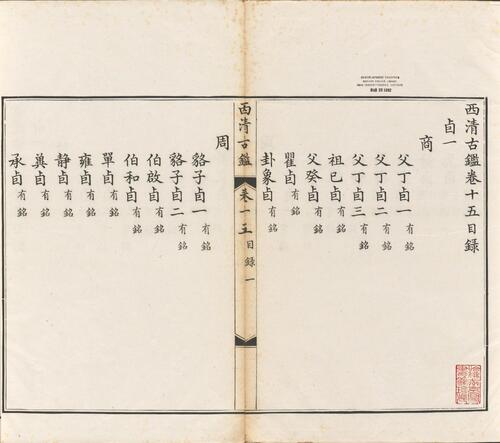 西清古鑑卷十五目錄
卣一
商
父丁卣一有銘
父丁卣二有銘
父丁卣三有銘
祖已卣有銘
父癸卣有銘
瞿卣有銘
卦象卣有銘
西清古鑑
卷十五目錄
一
周
貉子卣一有銘
貉子卣二有銘
伯啟卣有銘
伯和卣有銘
單卣有銘
雍卣有銘
靜卣有銘
冀卣有銘
承卣有銘